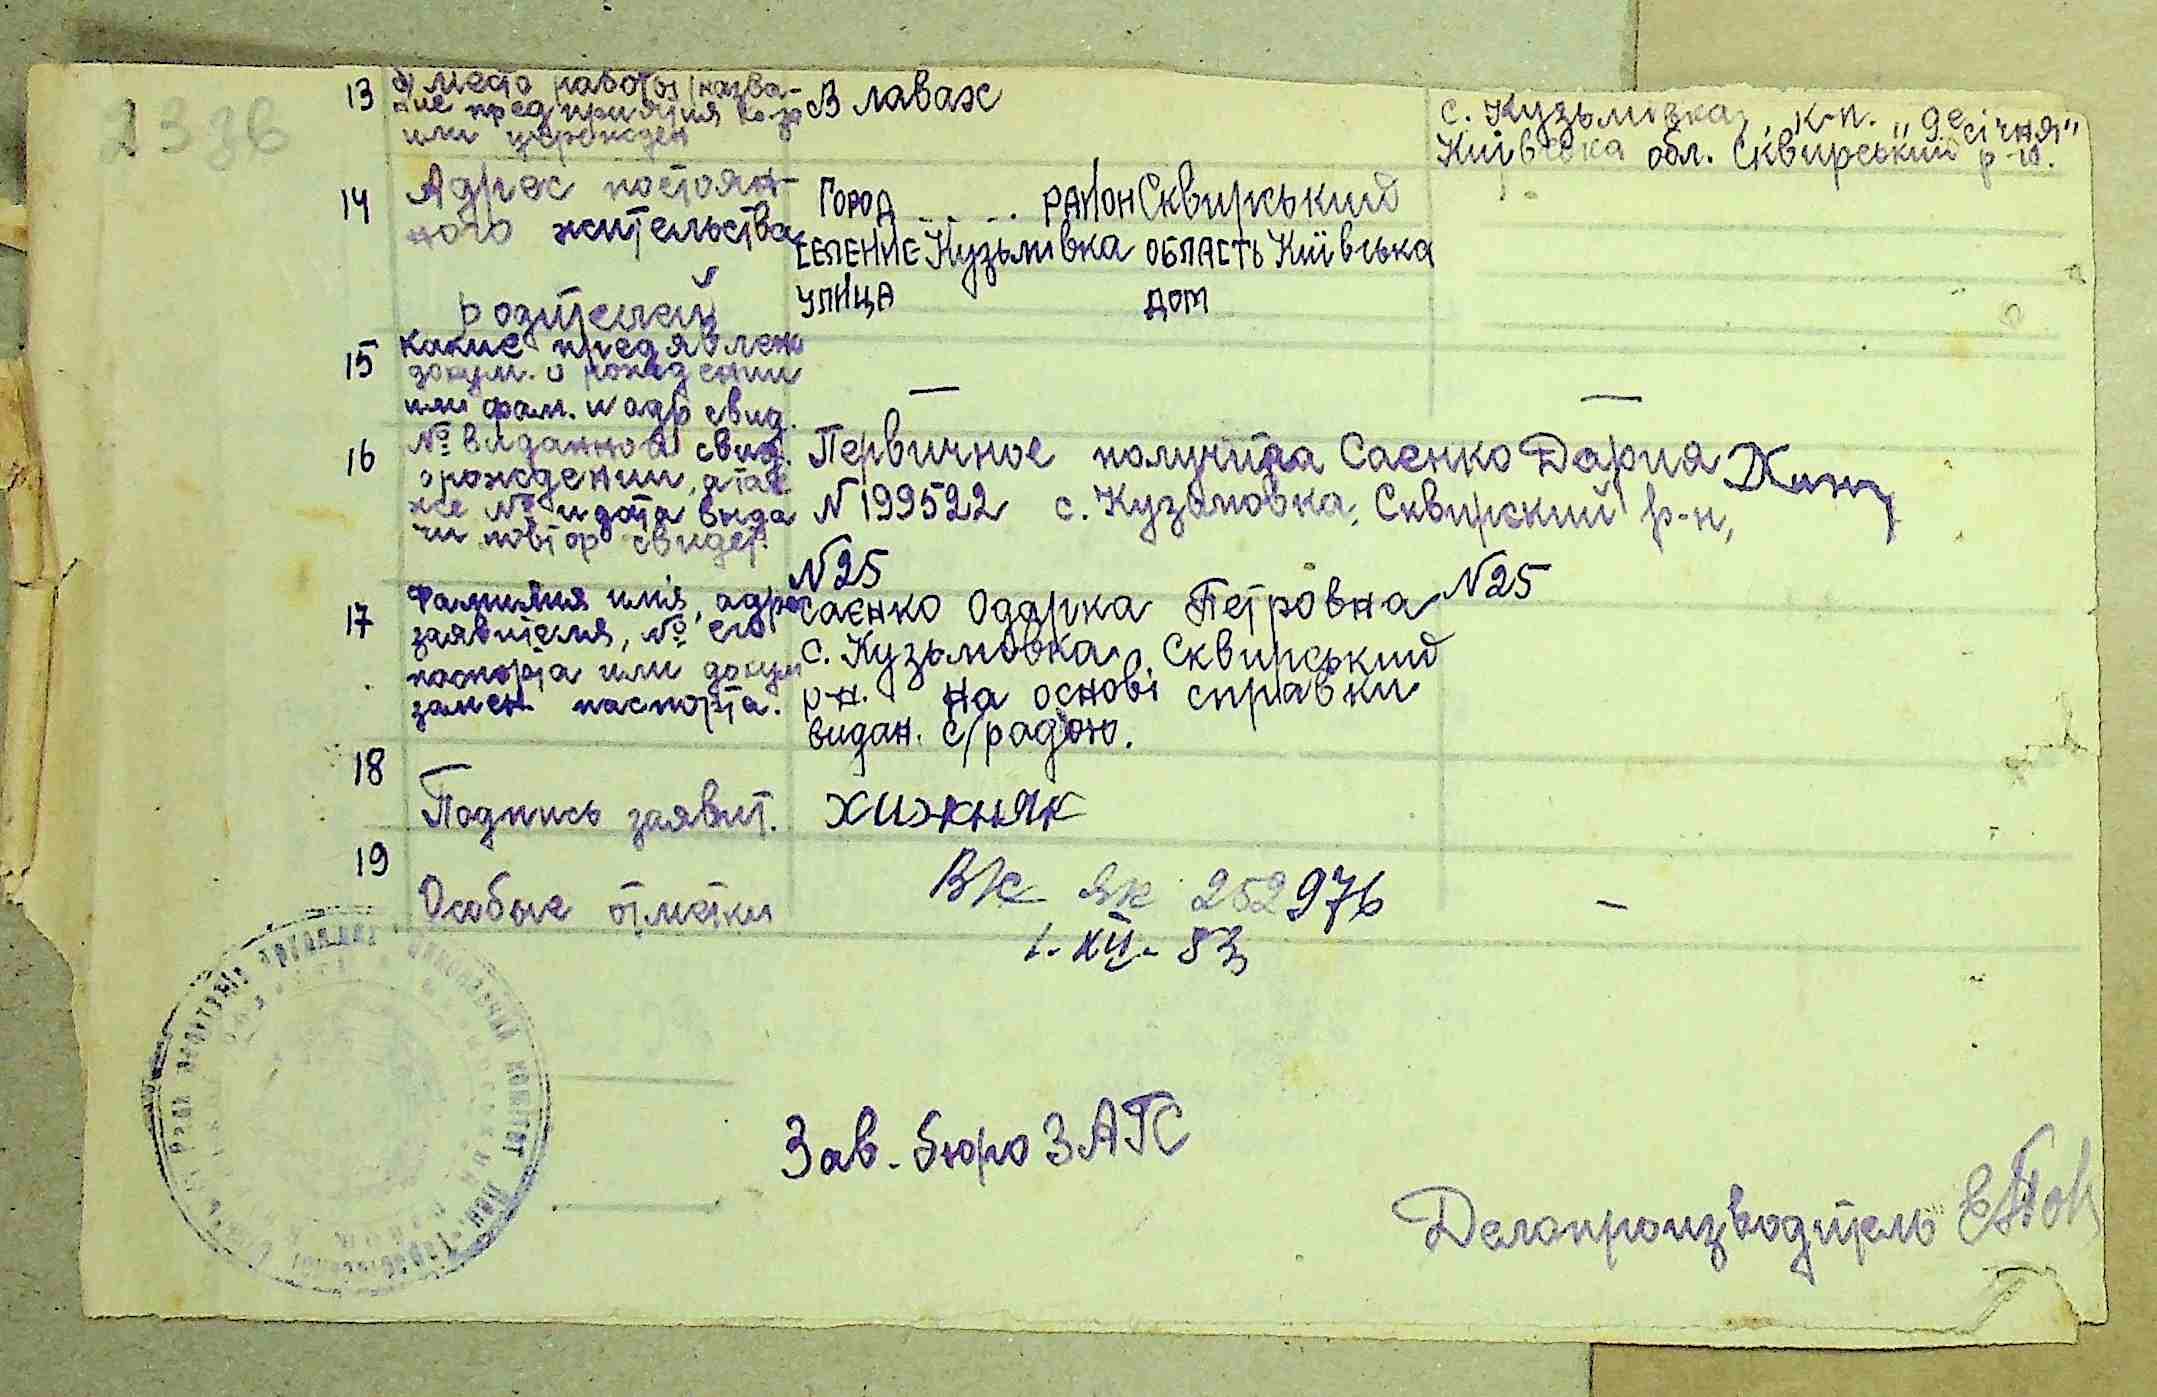 2336
13 б) место работы (назва-
ние предприятия ко-за
или учережден
В лавах
с. Кузьмівка, к-п. „9е січня"
Київська обл. Сквирський р-н.
14 Адрес постоян-
ного жительства
родителей
Город . . . . Район Сквирський
Селение Кузьмівка область Київська
улица дом
15 Какие предявлены
докум. о рождении
или фам. и адр свид.
—
—
16 № выданной свид.
о рождении, а так
же № и дата выда
чи повтор свидет.
Первичное получила Саєнко Дария
N 199522 с. Кузьмовка, Сквирский р-н,
17 Фамилия имя, адрес
заявителя, № его
паспорта или докум
замен паспорта.
N25
Саєнко Одарка Петровна N25
с. Кузьмовка, Сквирський
р-н. на основі справки
видан. с/радою.
18 Подпись заявит.
Хижняк
19 Особые отметки
ВК ЯК 252976
1.-XII.- 53
—
Зав. бюро ЗАГС
Делопроизводитель